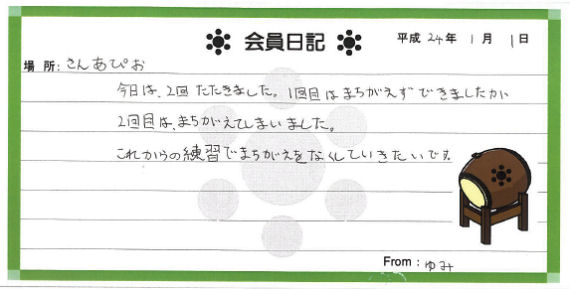 会員日記
平成24年 1月 1日
場所:さんあぴお
今日は、2回たたきました。1回目はまちがえずできましたが
2回目は、まちがえてしまいました。
これからの練習でまちがえをなくしていきたいです。
From:ゆみ